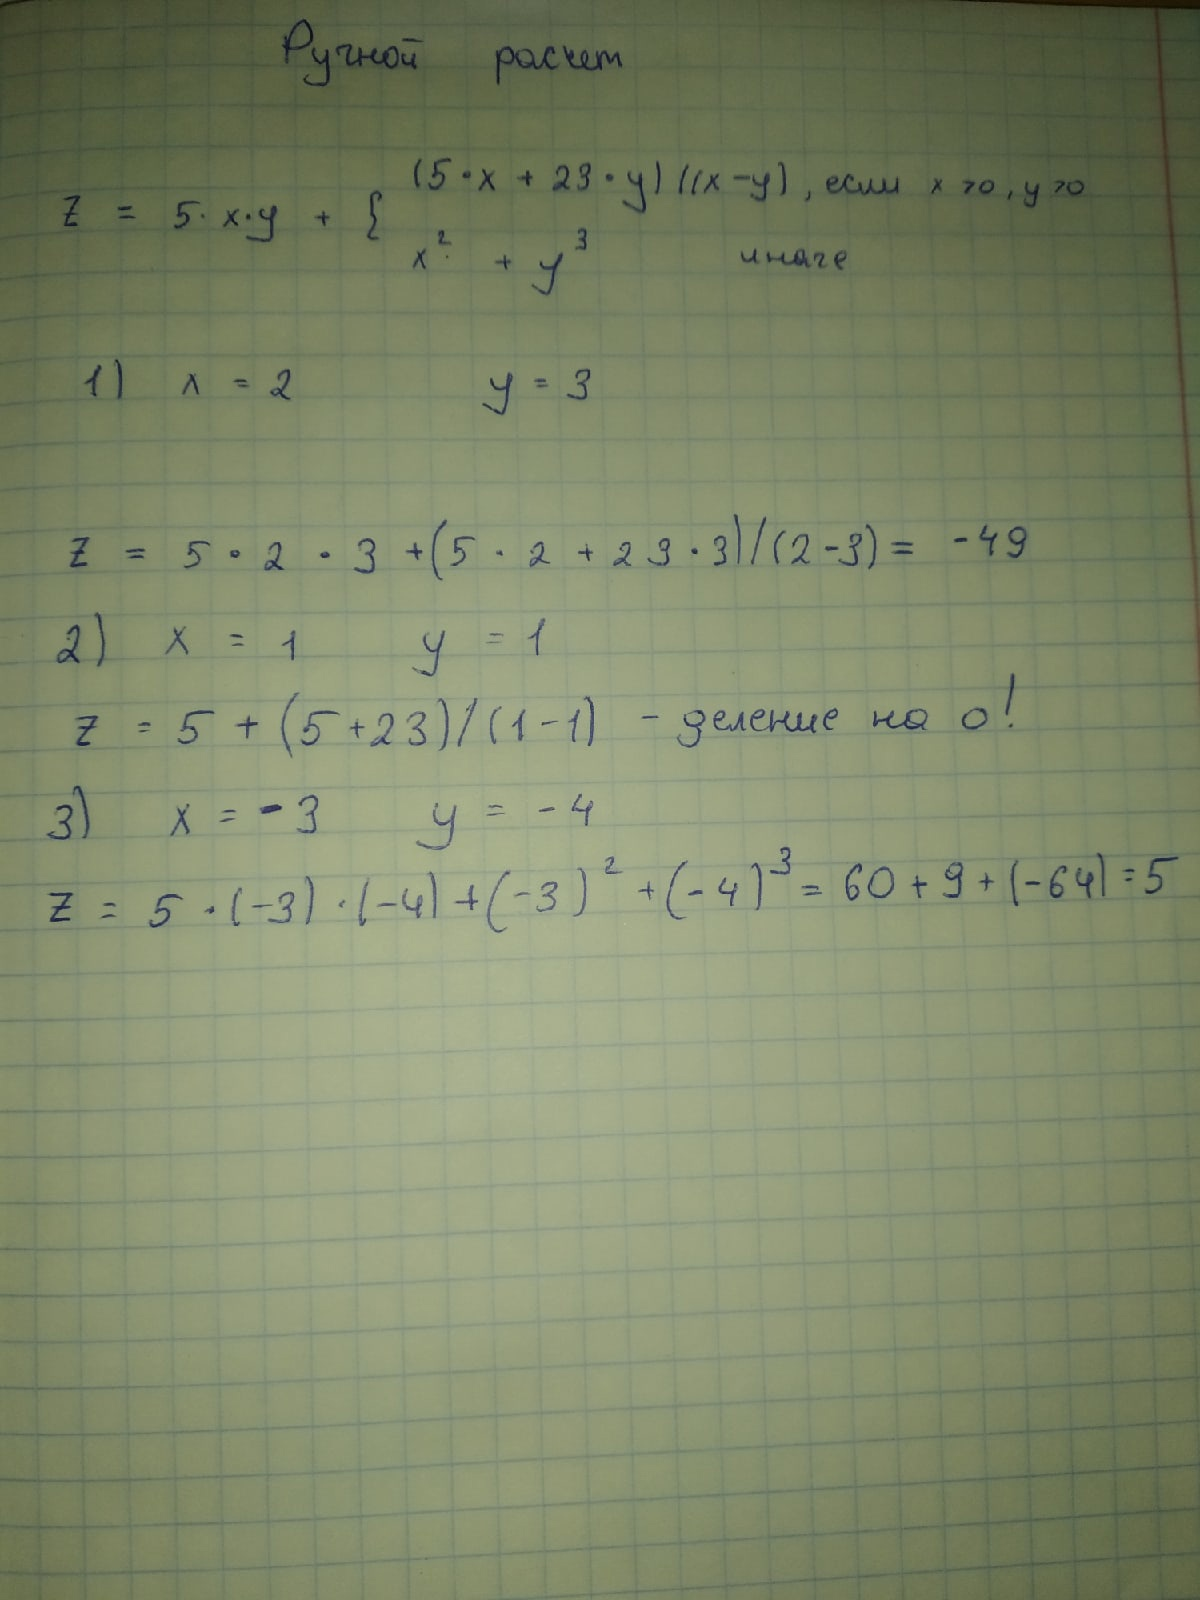 Ручной расчет
(5·x + 23·y) /(x-y), если x>0, y>0
z = 5·x·y + {
x² + y³ иначе
1) x = 2 y = 3
z = 5·2·3 +(5·2 + 23·3)/(2-3) = -49
2) x = 1 y = 1
z = 5 + (5+23)/(1-1) - деление на 0!
3) x = -3 y = -4
z = 5·(-3)·(-4)+(-3)² +(-4)³ = 60+9+(-64)=5